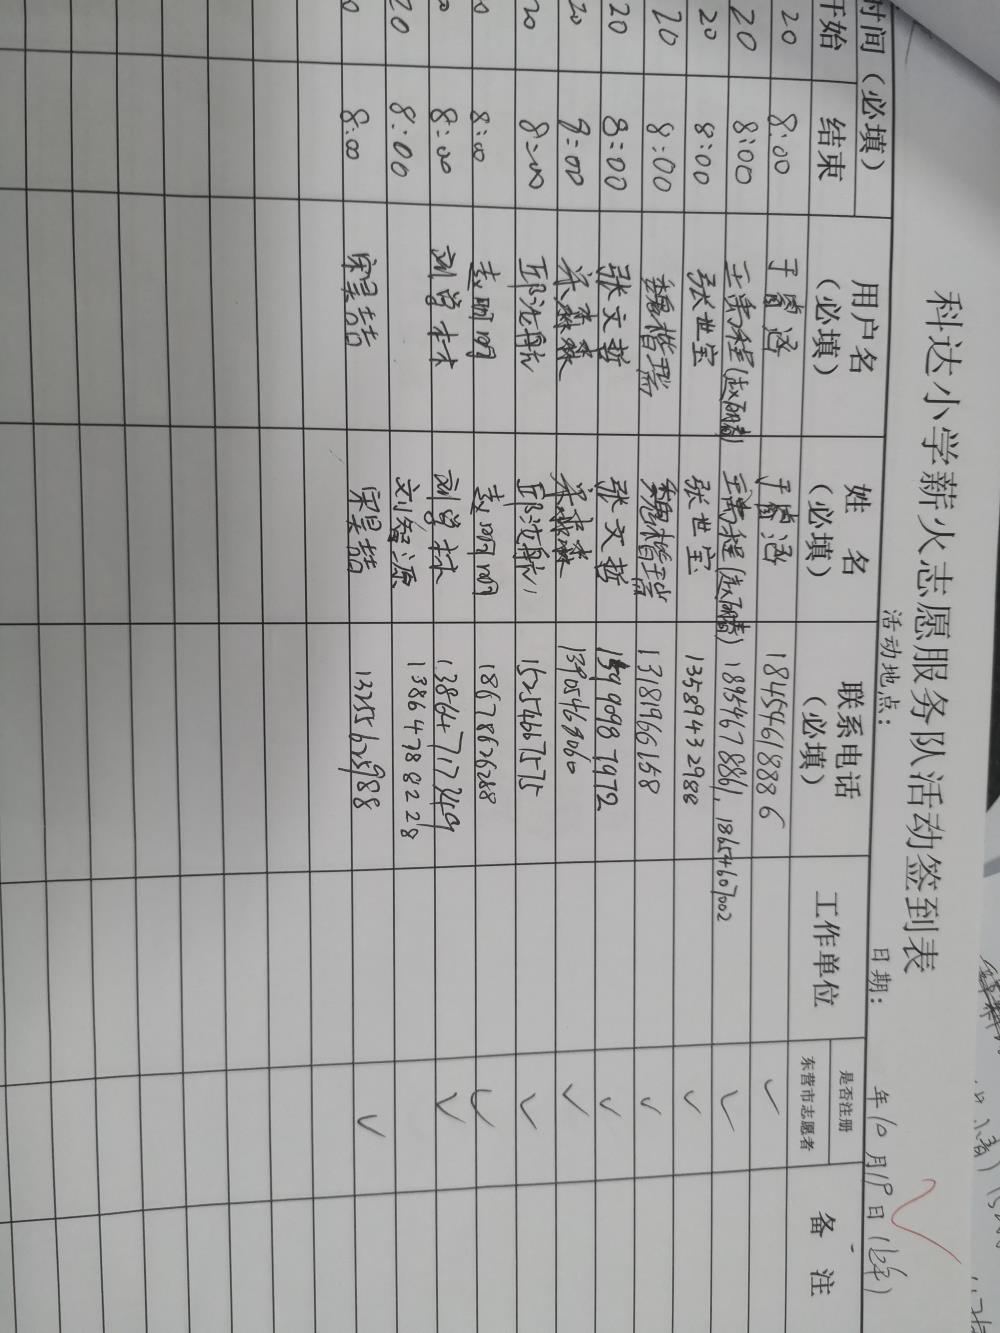 科达小学薪火志愿服务队活动签到表
活动地点： 日期： 年10月19日
时间（必填） 用户名（必填） 姓名（必填） 联系电话（必填） 工作单位 是否注册东营市志愿者 备注
开始 结束
20 8:00 于睿涵 于睿涵 18454618886 ✓
20 8:00 王禹程(赵丽青) 王禹程(赵丽青) 18954678861, 18654607002 ✓
20 8:00 张世宝 张世宝 13589432988 ✓
20 8:00 魏楷瑞 魏楷瑞 13181966158 ✓
20 8:00 张文哲 张文哲 15990987972 ✓
20 8:00 13905469060 ✓
20 8:00 邱浩航 邱浩航 15254667575 ✓
8:00 明明 明明 18678626288 ✓
8:00 刘曾林 刘曾林 ✓
20 8:00 刘智源 13864788228
8:00 宋昊喆 宋昊喆 13256625988 ✓